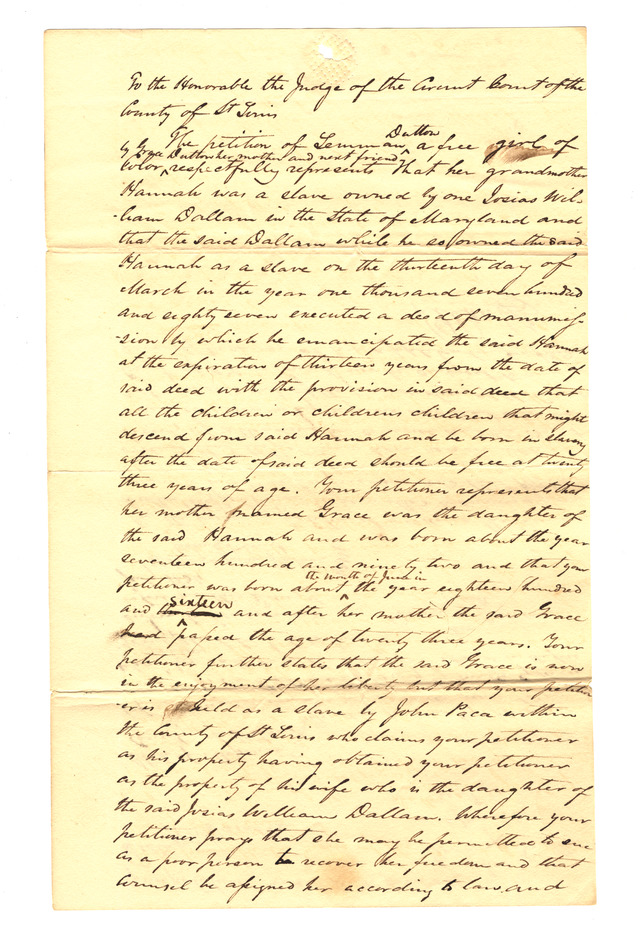 To the Honorable the Judge of the Circuit Court of the
County of St Louis
The petition of Lemmon Dutton a free girl of
color by Grace Dutton her mother and next friend respectfully represents that her grandmother
Hannah was a slave owned by one Josias Wil-
-liam Dallam in the State of Maryland and
that the said Dallam while he so owned the said
Hannah as a slave on the thirteenth day of
March in the year one thousand seven hundred
and eighty seven executed a deed of manumis-
-sion by which he emancipated the said Hannah
at the expiration of thirteen years from the date of
said deed with the provision in said deed that
all the children or childrens children that might
descend from said Hannah and be born in slavery
after the date of said deed should be free at twenty
three years of age. Your petitioner represents that
her mother named Grace was the daughter of
the said Hannah and was born about the year
seventeen hundred and ninety two and that your
petitioner was born about the month of June in the year eighteen hundred
and sixteen and after her mother the said Grace
had passed the age of twenty three years. Your
petitioner further states that the said Grace is now
in the enjoyment of her liberty but that your petition-
-er is held as a slave by John Paca within
the County of St Louis who claims your petitioner
as his property having obtained your petitioner
as the property of his wife who is the daughter of
the said Josias William Dallam. Wherefore your
petitioner prays that she may be permitted to sue
as a poor person to recover her freedom and that
counsel be assigned her according to law and